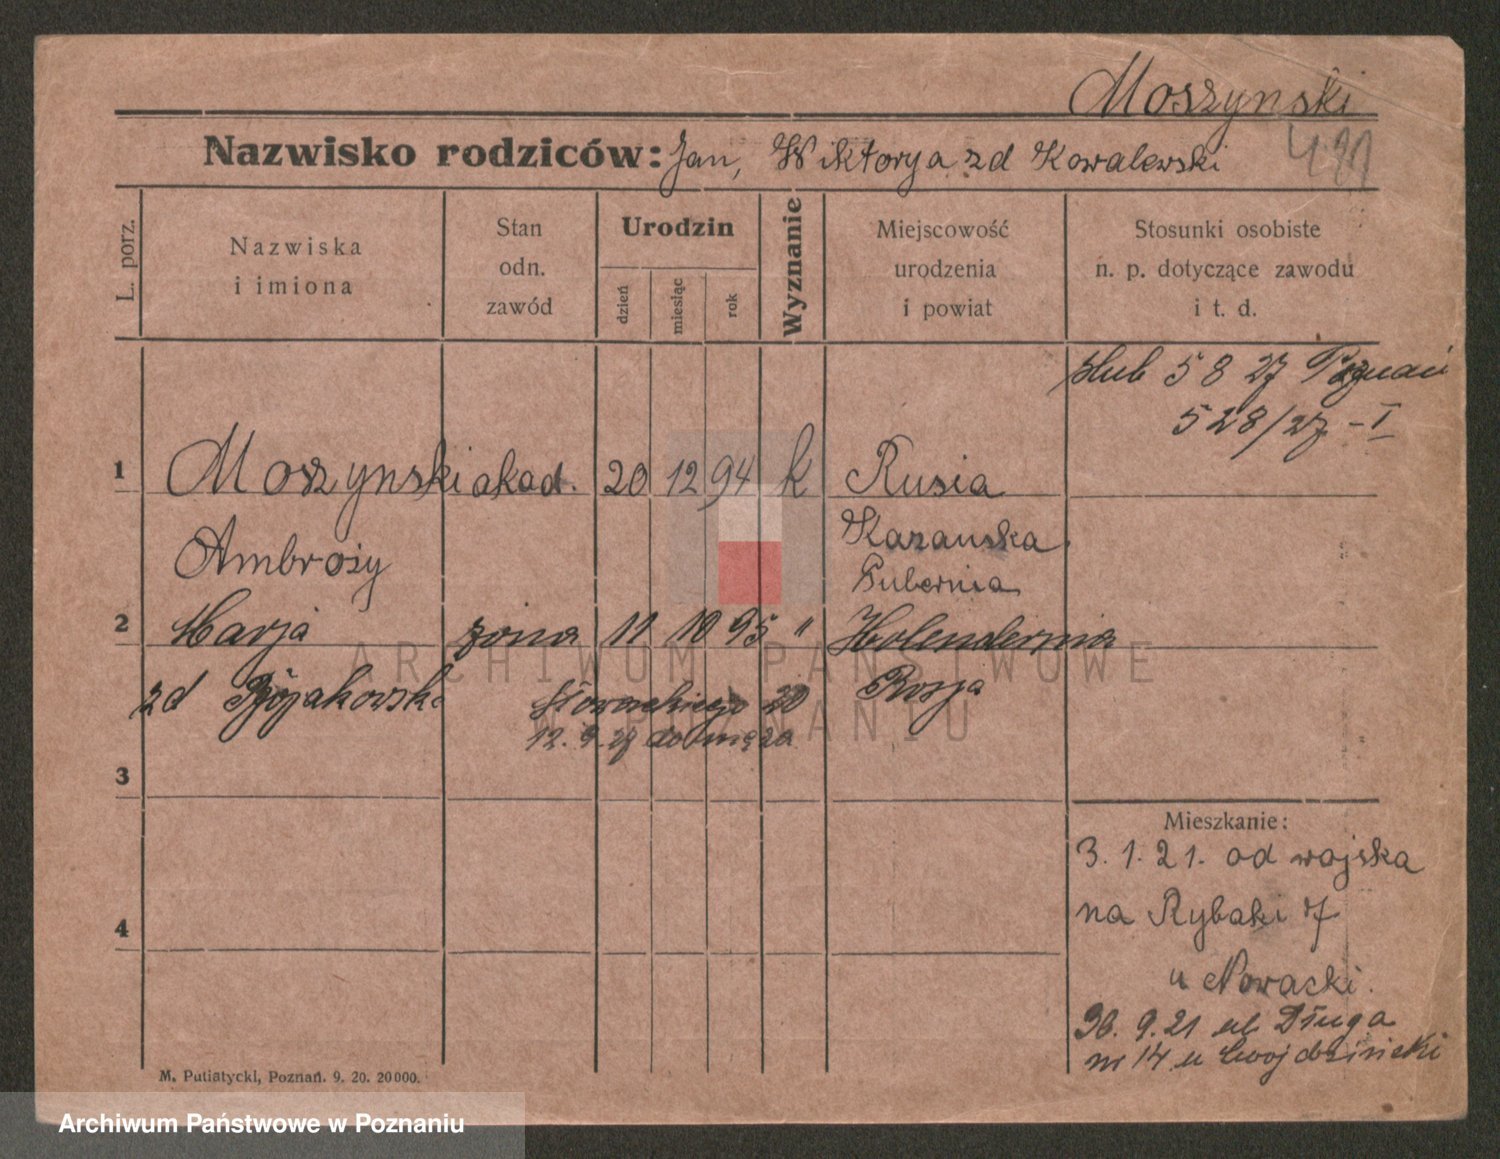 Moszynski
Nazwisko rodziców: Jan, Wiktorya zd Kowalewski
L. porz.
Nazwiska
i imiona
Stan
odn.
zawód
Urodzin
dzień
miesiąc
rok
Wyznanie
Miejscowość
urodzenia
i powiat
Stosunki osobiste
n. p. dotyczące zawodu
i t. d.
ślub 5 8 27 Poznań
528/27 - I
1 Moszynski akad. 20 12 94 k Rusia
Ambroży Kazanska
Gubernia
2 Marja żona 11 10 95 " Holendernia
zd Rosja
Słowackiego 20
12. 9. 27 do męża
3
Mieszkanie:
3. 1. 21. od wojska
na Rybaki 7
4
u Nowacki.
9. 21 ul Długa
nr 14 u
M. Putiatycki, Poznań. 9. 20. 20000.
ARCHIWUM PAŃSTWOWE
W POZNANIU
Archiwum Państwowe w Poznaniu